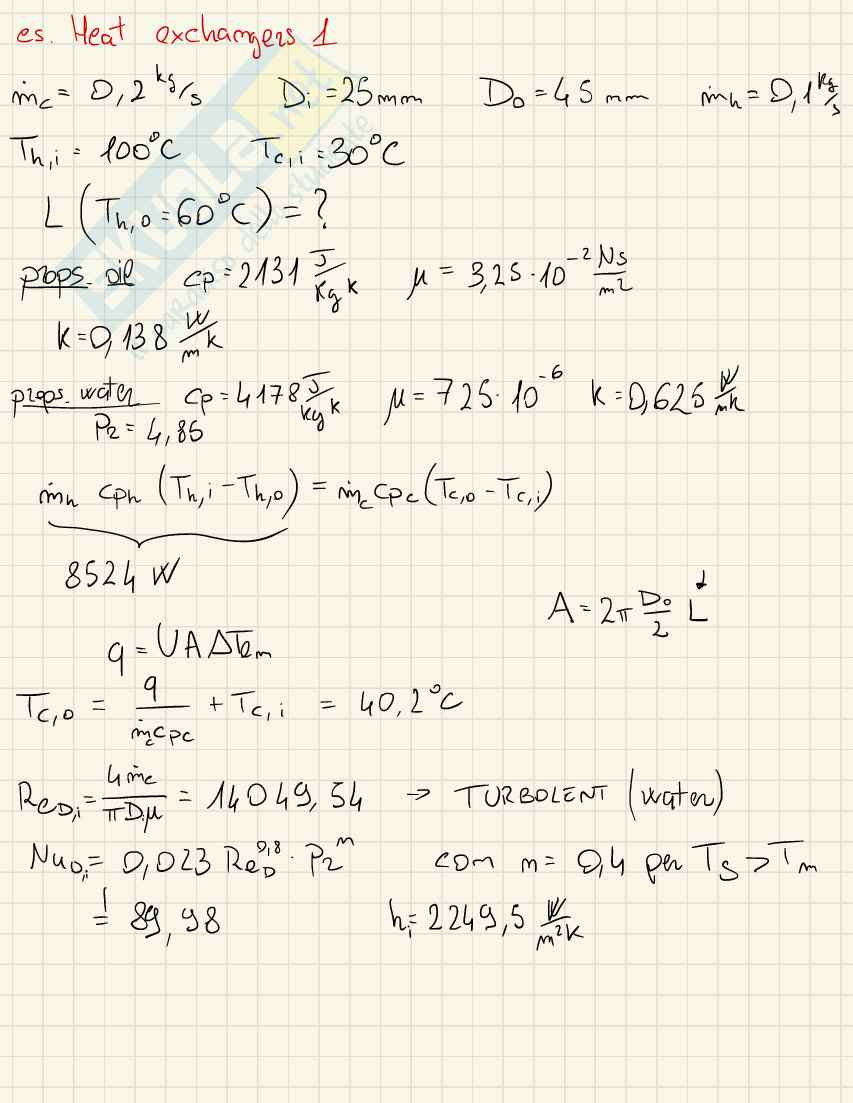 es. Heat exchangers 1
ṁc = 0,2 kg/s   Di = 25 mm   Do = 45 mm   ṁh = 0,1 kg/s
Th,i = 100°C   Tc,i = 30°C
L (Th,o = 60°C) = ?
props. oil   cp = 2131 J/kg K   μ = 3,25 · 10^-2 Ns/m²
K = 0,138 W/mK
props. water   cp = 4178 J/kg K   μ = 725 · 10^-6   k = 0,625 W/mK
Pr = 4,85
ṁh cph (Th,i - Th,o) = ṁc cpc (Tc,o - Tc,i)
8524 W
A = 2π Do/2 L
q = UAΔTlm
Tc,o = q/ṁc cpc + Tc,i = 40,2°C
ReD,i = 4ṁc/πDiμ = 14049,54 → TURBOLENT (water)
NuD,i = 0,023 ReD^0,8 · Pr^m   com m = 0,4 per Ts > Tm
= 89,98   hi = 2249,5 W/m²K
SKUOLA.net